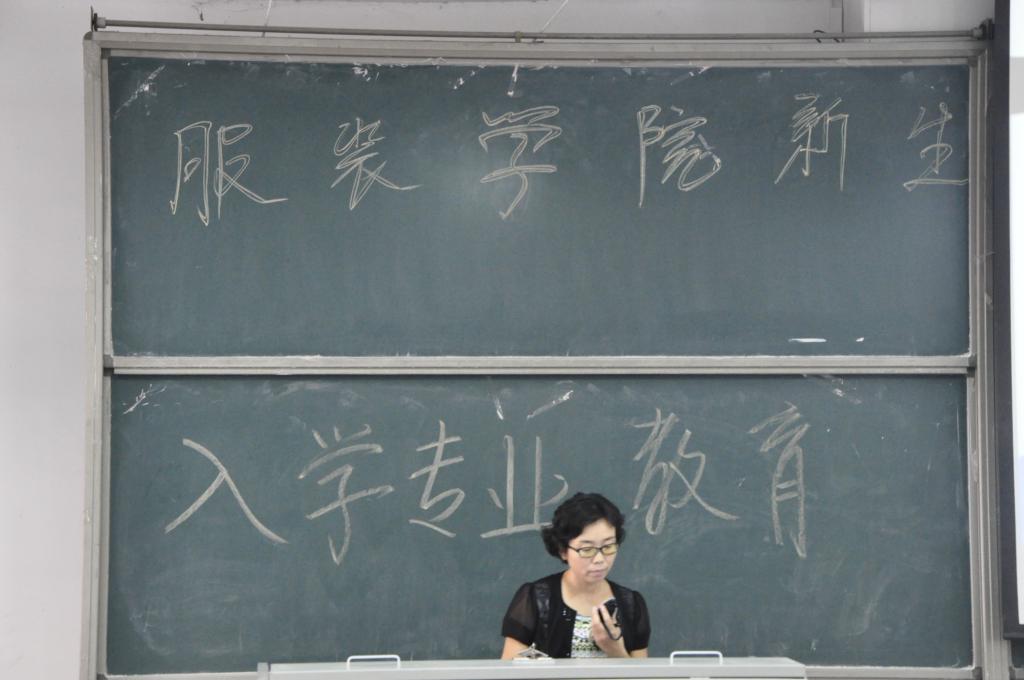 服装学院新生
入学专业教育